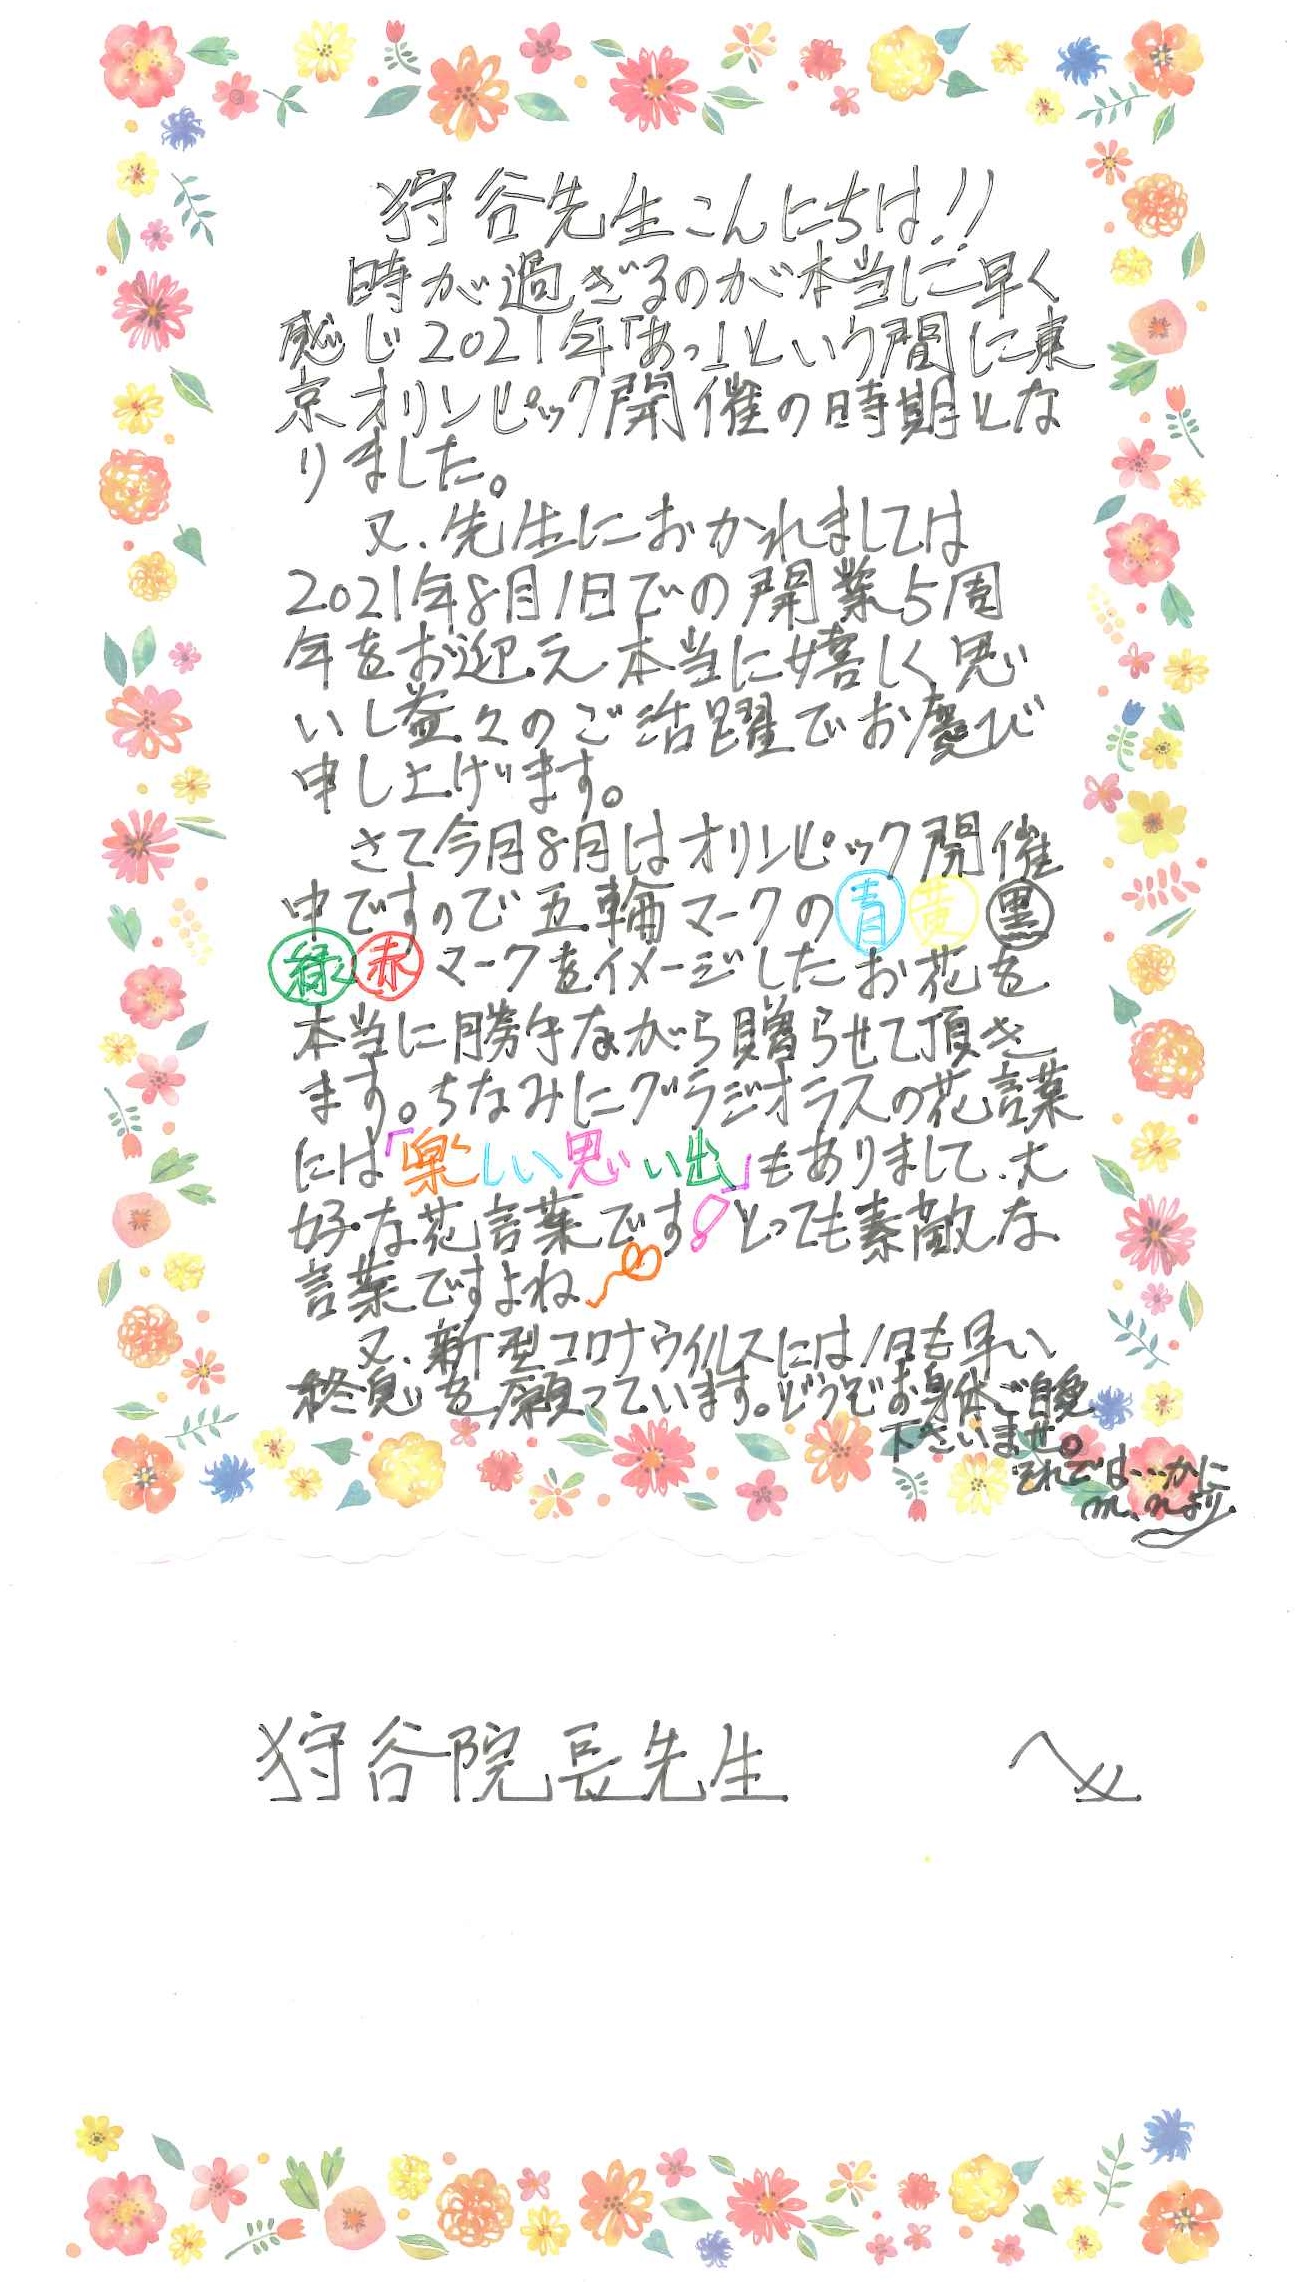 狩谷先生こんにちは!!
時が過ぎるのが本当に早く
感じ2021年「あっ」という間に東
京オリンピック開催の時期とな
りました。
又、先生におかれましては
2021年8月1日での開業5周
年をお迎え本当に嬉しく思
いし益々のご活躍でお慶び
申し上げます。
さて今月8月はオリンピック開催
中ですので五輪マークの青黄黒
緑赤マークをイメージしたお花を
本当に勝手ながら贈らせて頂き
ます。ちなみにグラジオラスの花言葉
には「楽しい思い出」もありまして、大
好きな花言葉です!とっても素敵な
言葉ですよね
又、新型コロナウイルスには1日も早い
終息を願っています。どうぞお身体ご自愛
下さいませ。
それでは…かしこ
m.nより
狩谷院長先生 へ